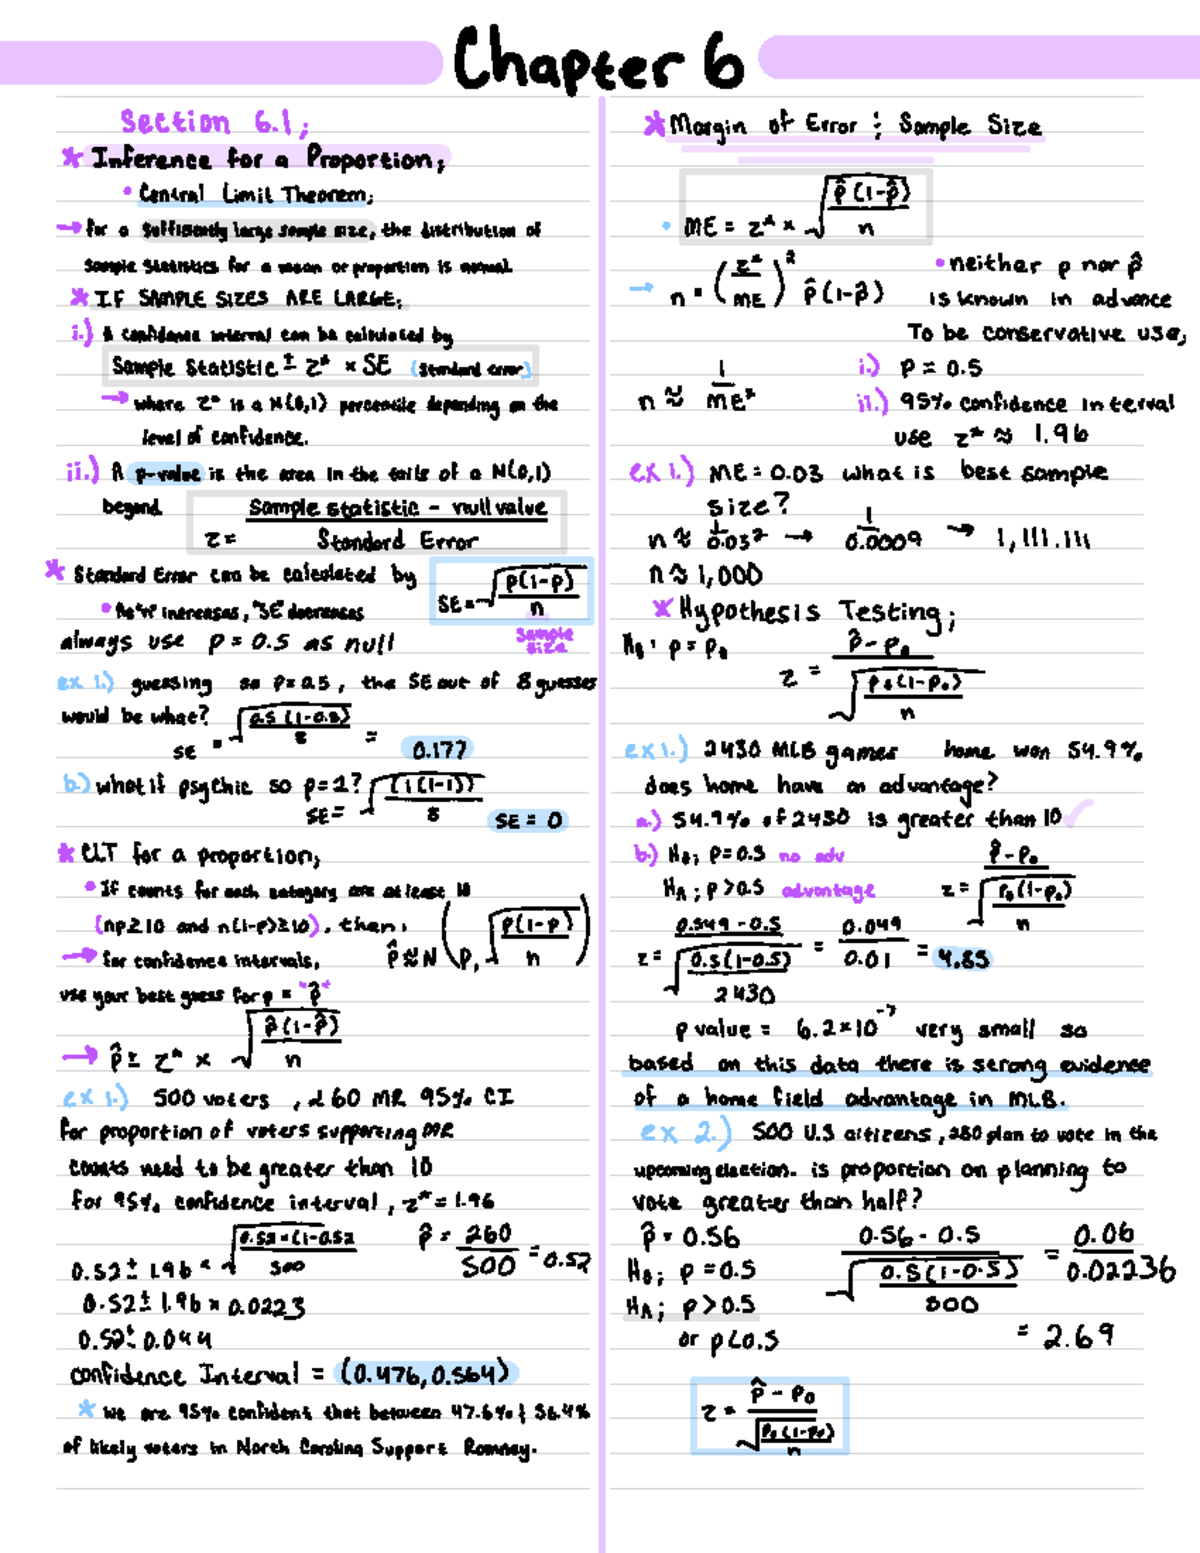 Chapter 6
Section 6.1;
* Inference for a Proportion;
• Central Limit Theorem;
→ for a sufficiently large sample size, the distribution of
sample statistics for a mean or proportion is normal
* IF SAMPLE SIZES ARE LARGE;
i.) A confidence interval can be calculated by
Sample Statistic ± z* × SE (standard error)
→ where z* is a N(0,1) percentile depending on the
level of confidence.
ii.) A p-value is the area in the tails of a N(0,1)
beyond z = (Sample statistic - null value) / Standard Error
* Standard Error can be calculated by SE = √(p(1-p)/n)
• As "n" increases, "SE" decreases
sample size
always use p = 0.5 as null
ex 1.) guessing so p=0.5, the SE out of 8 guesses
would be what? √(0.5(1-0.5)/8)
SE = = 0.177
b.) what if psychic so p=1? √(1(1-1))/8
SE= SE = 0
* CLT for a proportion;
• If counts for each category are at least 10
(np≥10 and n(1-p)≥10), then;
p̂ ≈ N(p, √(p(1-p)/n))
→ for confidence intervals,
use your best guess for p = "p̂"
→ p̂ ± z* × √(p̂(1-p̂)/n)
ex 1.) 500 voters, 260 MR 95% CI
for proportion of voters supporting MR
counts need to be greater than 10
for 95% confidence interval, z* = 1.96
p̂ = 260/500 = 0.52
0.52 ± 1.96 × √(0.52×(1-0.52/500)
0.52 ± 1.96 × 0.0223
0.52 ± 0.044
confidence Interval = (0.476, 0.564)
* we are 95% confident that between 47.6% & 56.4%
of likely voters in North Carolina Support Romney.
* Margin of Error ; Sample Size
• ME = z* × √(p̂(1-p̂)/n)
→ n = (z*/ME)² p̂(1-p̂)
• neither p nor p̂
is known in advance
To be conservative use;
i.) p = 0.5
n ≈ 1/ME²
ii.) 95% confidence interval
use z* ≈ 1.96
ex 1.) ME = 0.03 what is best sample
size?
n ≈ 1/0.03² → 1/0.0009 → 1,111.111
n ≈ 1,000
* Hypothesis Testing;
H₀: p = p₀ z = (p̂ - p₀)/√(p₀(1-p₀)/n)
ex 1.) 2430 MLB games home won 54.9%
does home have an advantage?
a.) 54.9% of 2430 is greater than 10 ✓
b.) H₀; p=0.5 no adv
HA; p>0.5 advantage z = (p̂ - p₀)/√(p₀(1-p₀)/n)
z = (0.549 - 0.5)/√(0.5(1-0.5)/2430) = 0.049/0.01 = 4.85
p value = 6.2×10⁻⁷ very small so
based on this data there is strong evidence
of a home field advantage in MLB.
ex 2.) 500 U.S citizens, 280 plan to vote in the
upcoming election. is proportion on planning to
vote greater than half?
p̂ = 0.56
H₀; p = 0.5
HA; p > 0.5
or p<0.5
(0.56 - 0.5)/√(0.5(1-0.5)/500) = 0.06/0.02236
= 2.69
z = (p̂ - p₀)/√(p₀(1-p₀)/n)